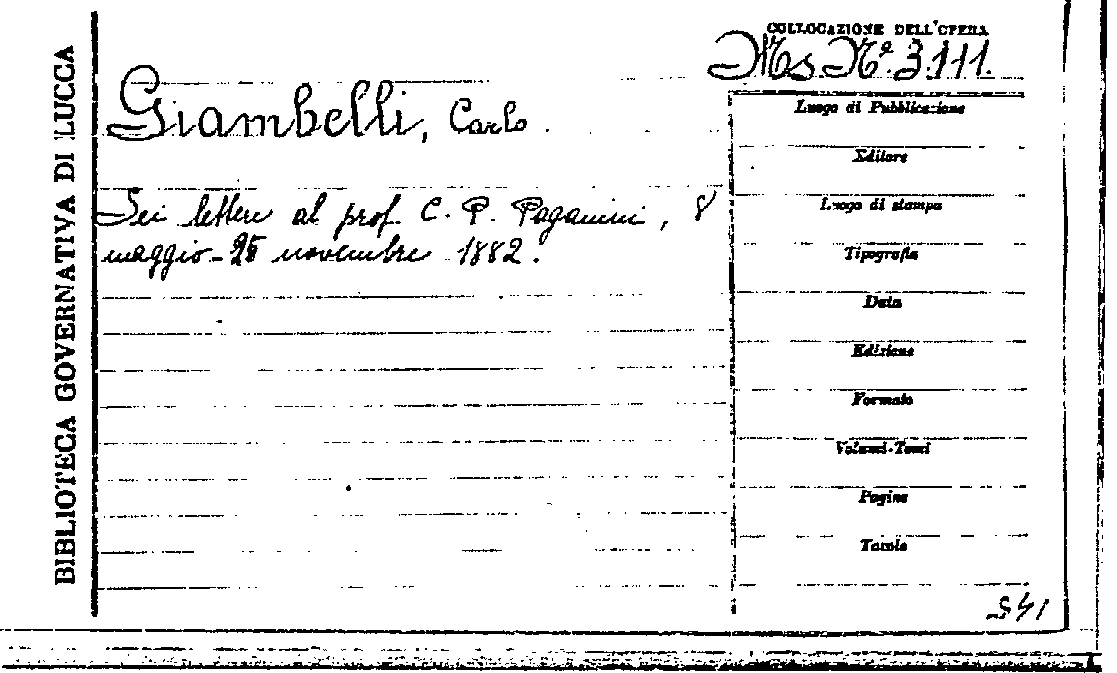 BIBLIOTECA GOVERNATIVA DI LUCCA
COLLOCAZIONE DELL'OPERA
Ms. Nº. 3.111.
Giambelli, Carlo.
Sei lettere al prof. C. P. Paganini, 8
maggio - novembre 1882.
Luogo di Pubblicazione
Editore
Luogo di stampa
Tipografia
Data
Edizione
Formato
Volumi-Tomi
Pagine
Tavole